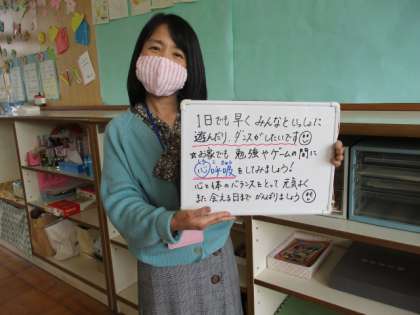 1日でも早く みんなといっしょに
遊んだり、ダンスがしたいです
☆お家でも 勉強やゲームの間に
心呼吸をしてみましょう!
心と体のバランスをとって 元気よく
また会える日まで がんばりましょう